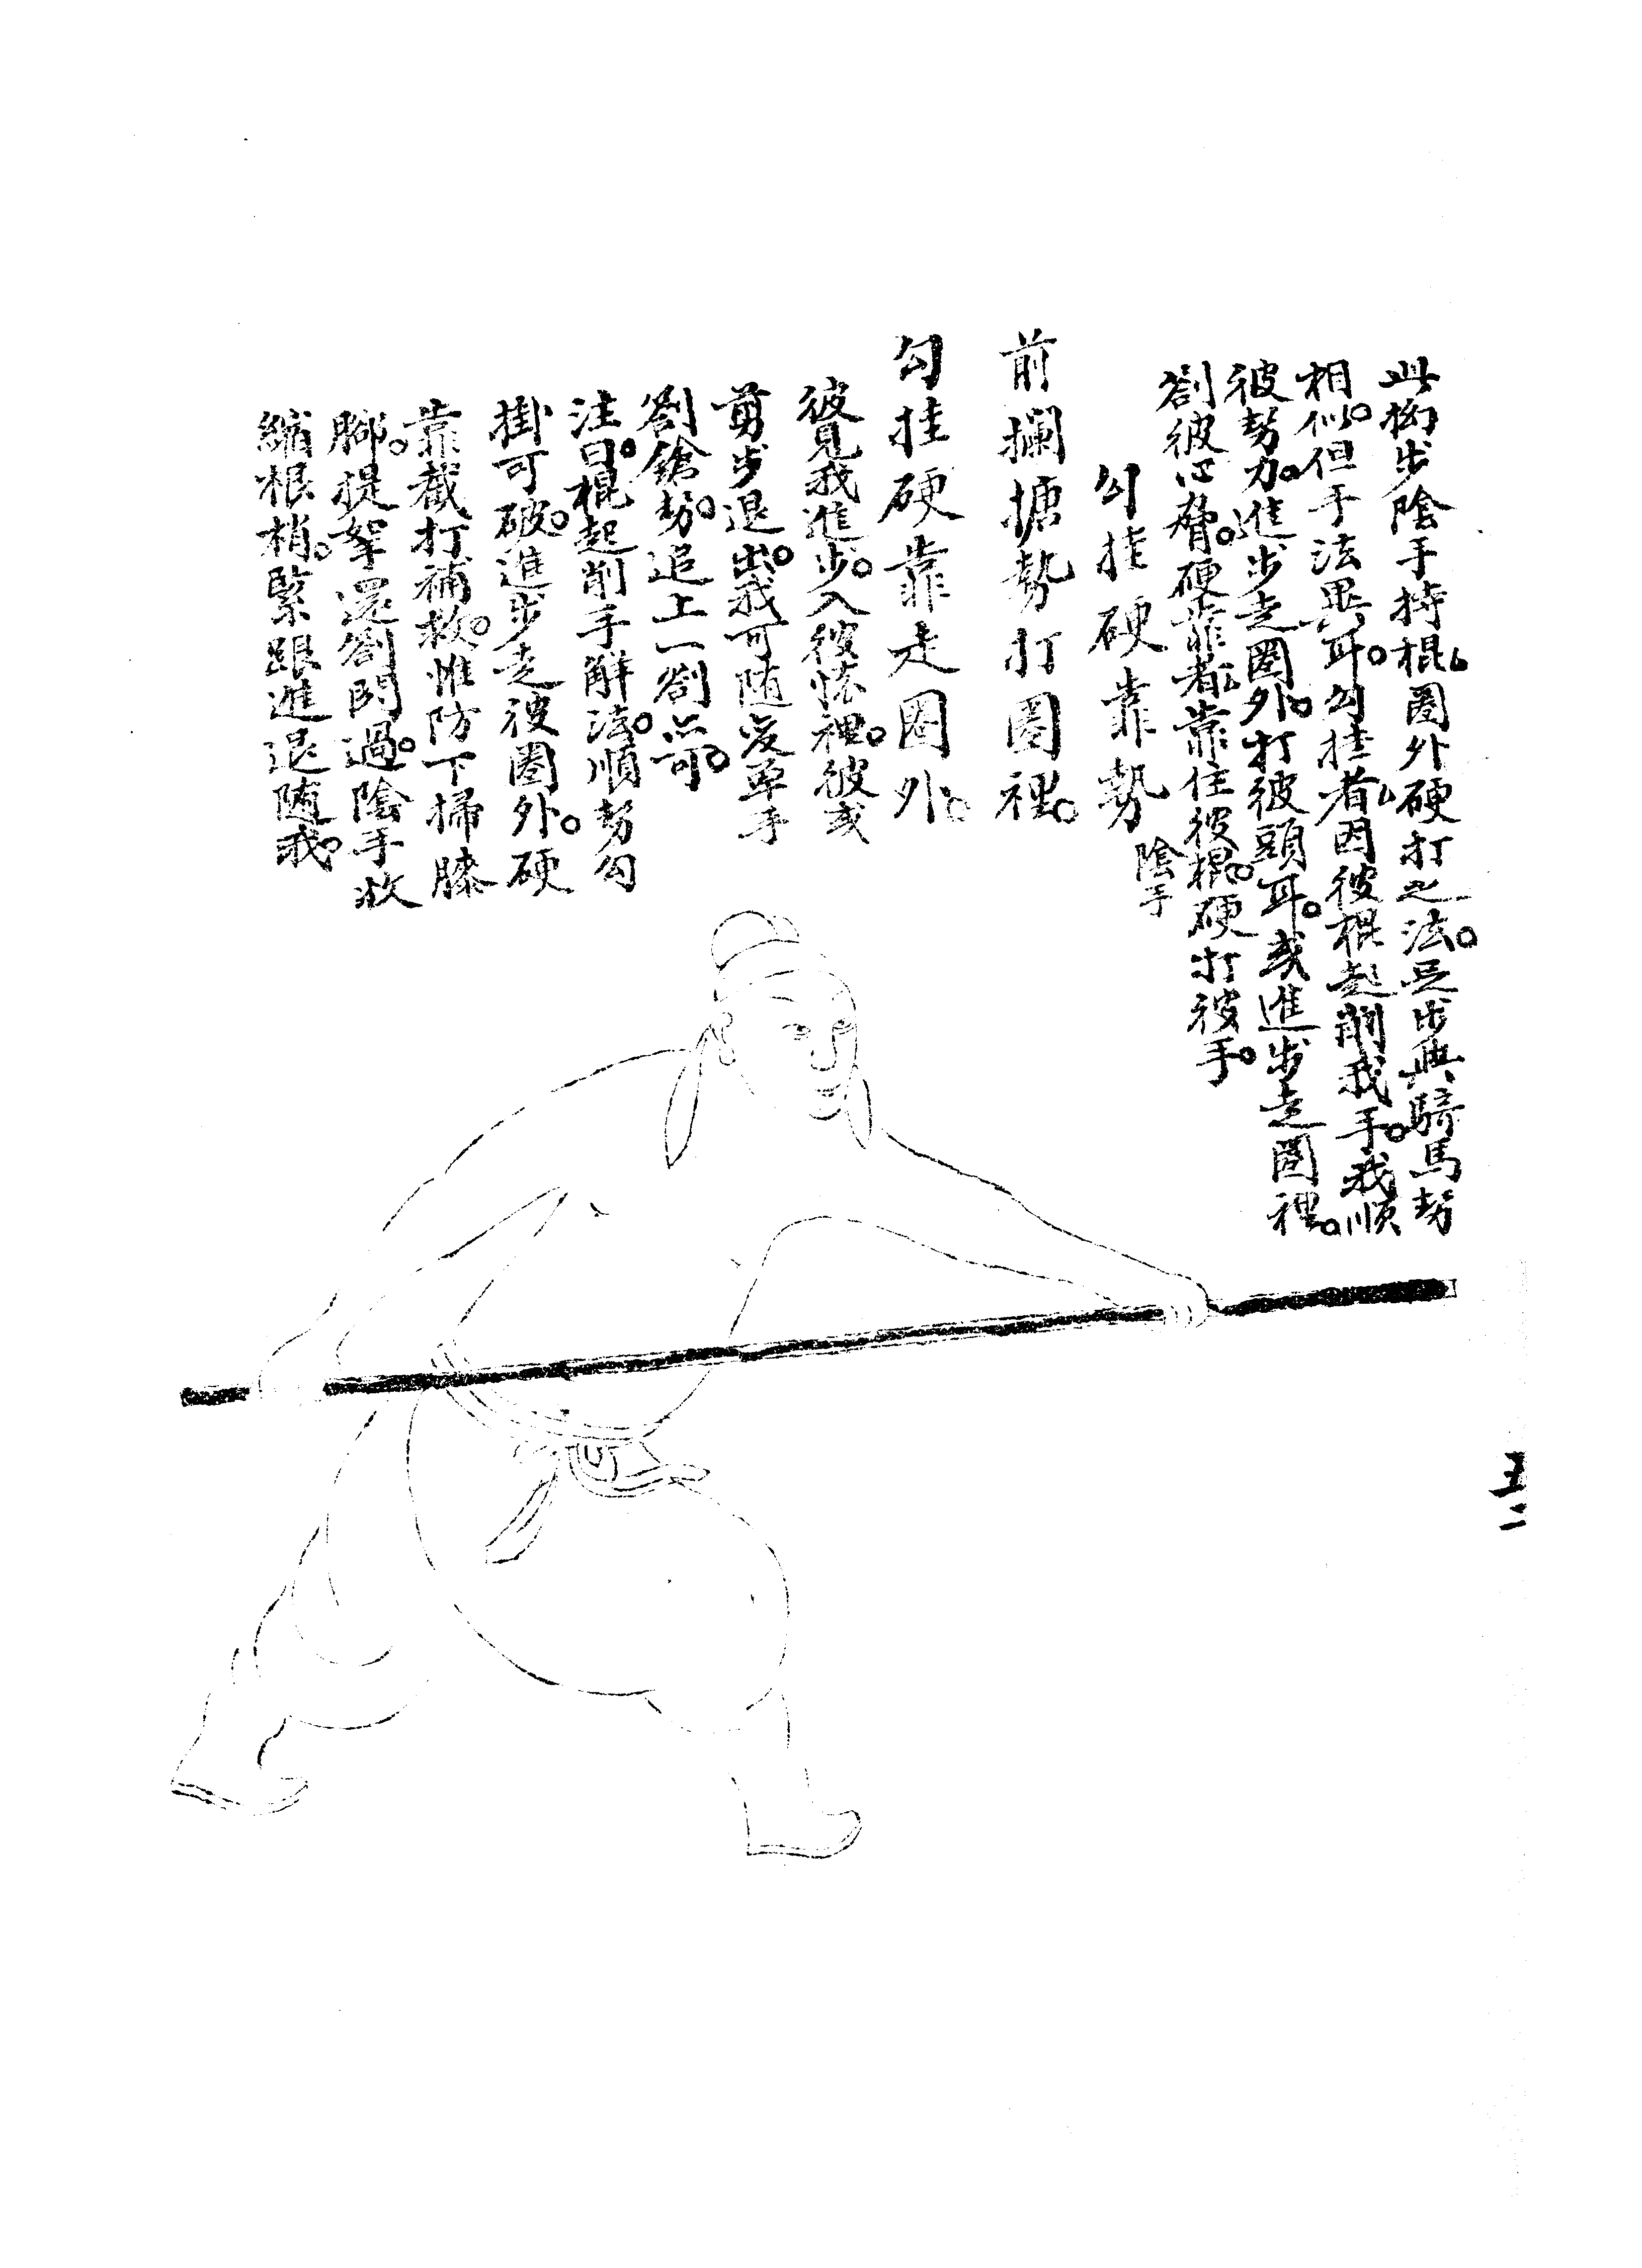 此拗步陰手持棍圈外硬打之法足步與騎馬勢
相似但手法異耳勾挂者因彼棍起削我手我順
彼勢力進步走圈外打彼頭耳或進步走圈裡
劄彼心脅硬靠者靠住彼棍硬打彼手
勾挂硬靠勢 陰手
前攔搪勢打圈裡
勾挂硬靠走圈外
彼見我進步入彼懷裡彼或
剪步退出我可随變单手
劄鎗勢追上一劄亦可
注曰棍起削手解法順勢勾
掛可破進步走彼圈外硬
靠截打補救惟防下掃膝
腳提拏還劄閃過陰手收
縮棍梢緊跟進退随我
五二